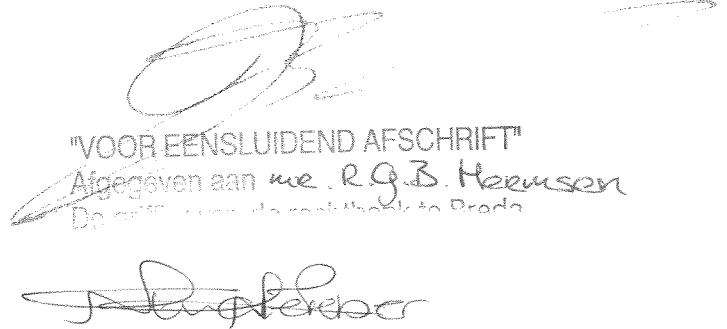 "VOOR EENSLUIDEND AFSCHRIFT"
Afgegeven aan mr. R.G.B. Hermsen
De griffier van de rechtbank te Breda